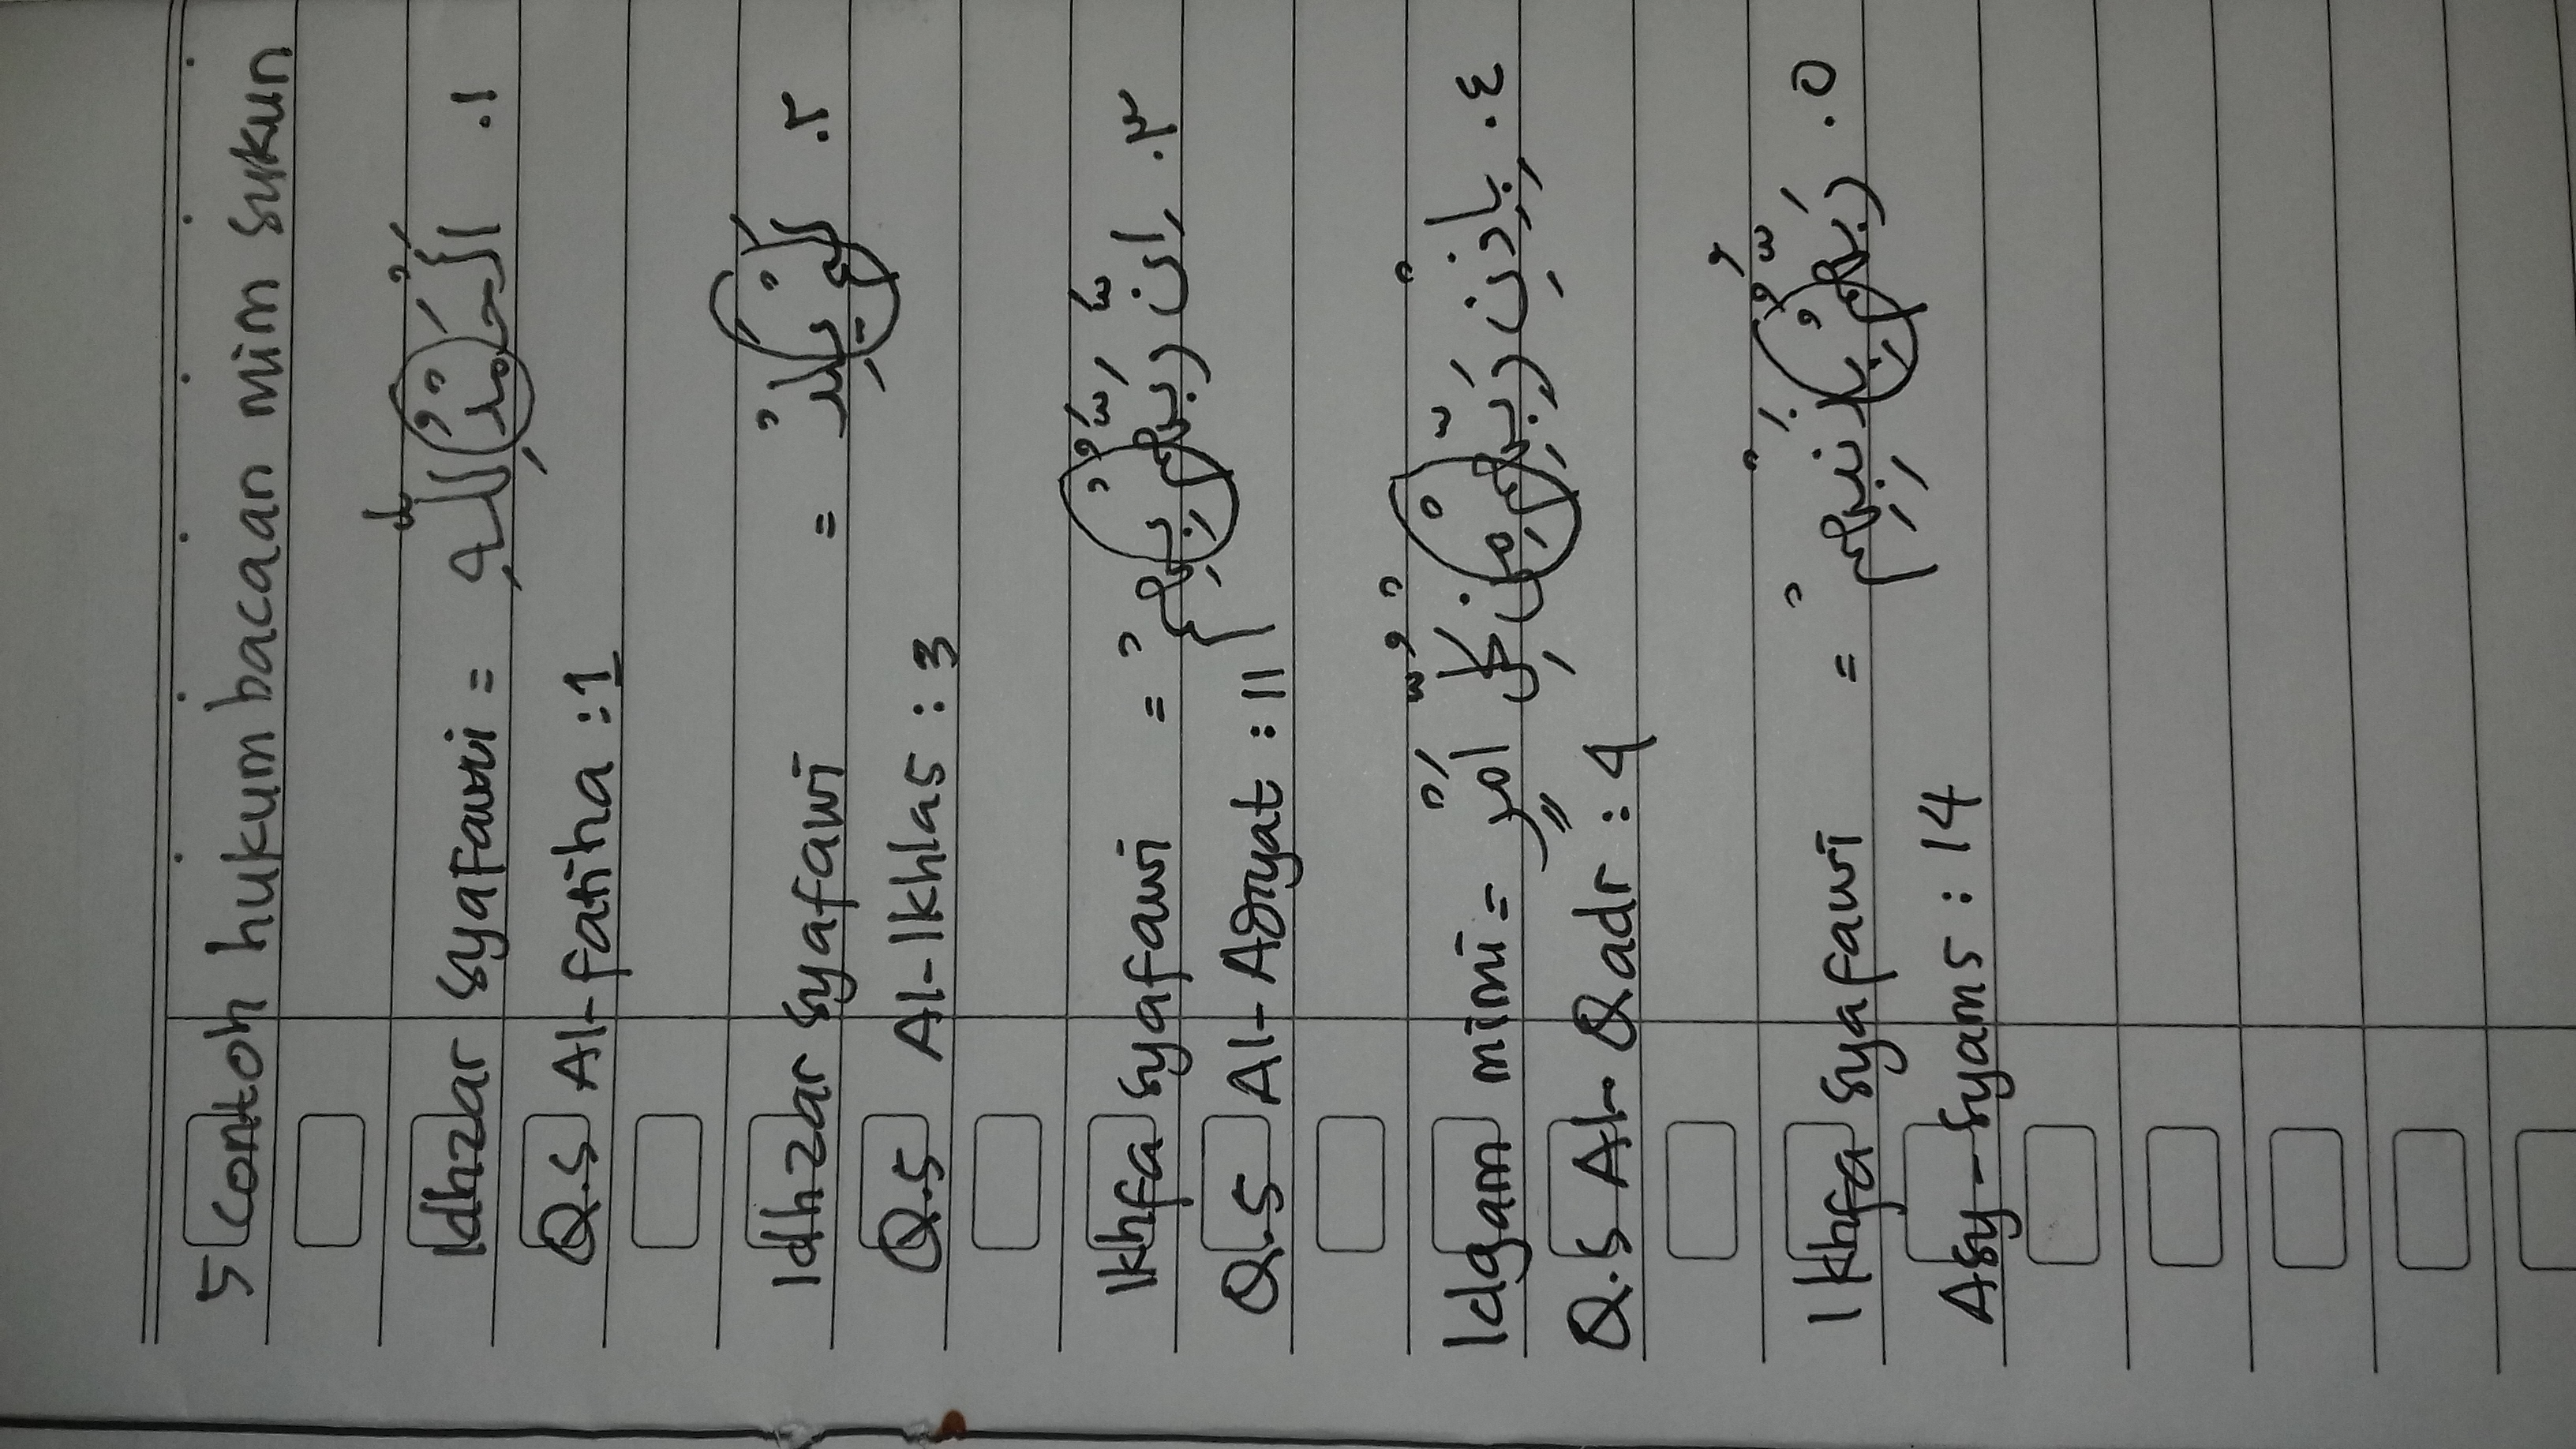 5 contoh hukum bacaan mim sukun
Idhzar syafawi = اَلْحَمْدُ لِلّٰهِ .١
Q.S Al-fatiha : 1
Idhzar syafawi = لَمْ يَلِدْ .٢
Q.S Al-Ikhlas : 3
Ikhfa syafawi = اِنَّ رَبَّهُمْ بِهِمْ .٣
Q.S Al- : 11
Idgam mimi = بِاِذْنِ رَبِّهِمْ مِنْ كُلِّ اَمْرٍ .٤
Q.S Al- Qadr : 4
Ikhfa syafawi = رَبُّهُمْ بِذَنْبِهِمْ .٥
Asy-syams : 14